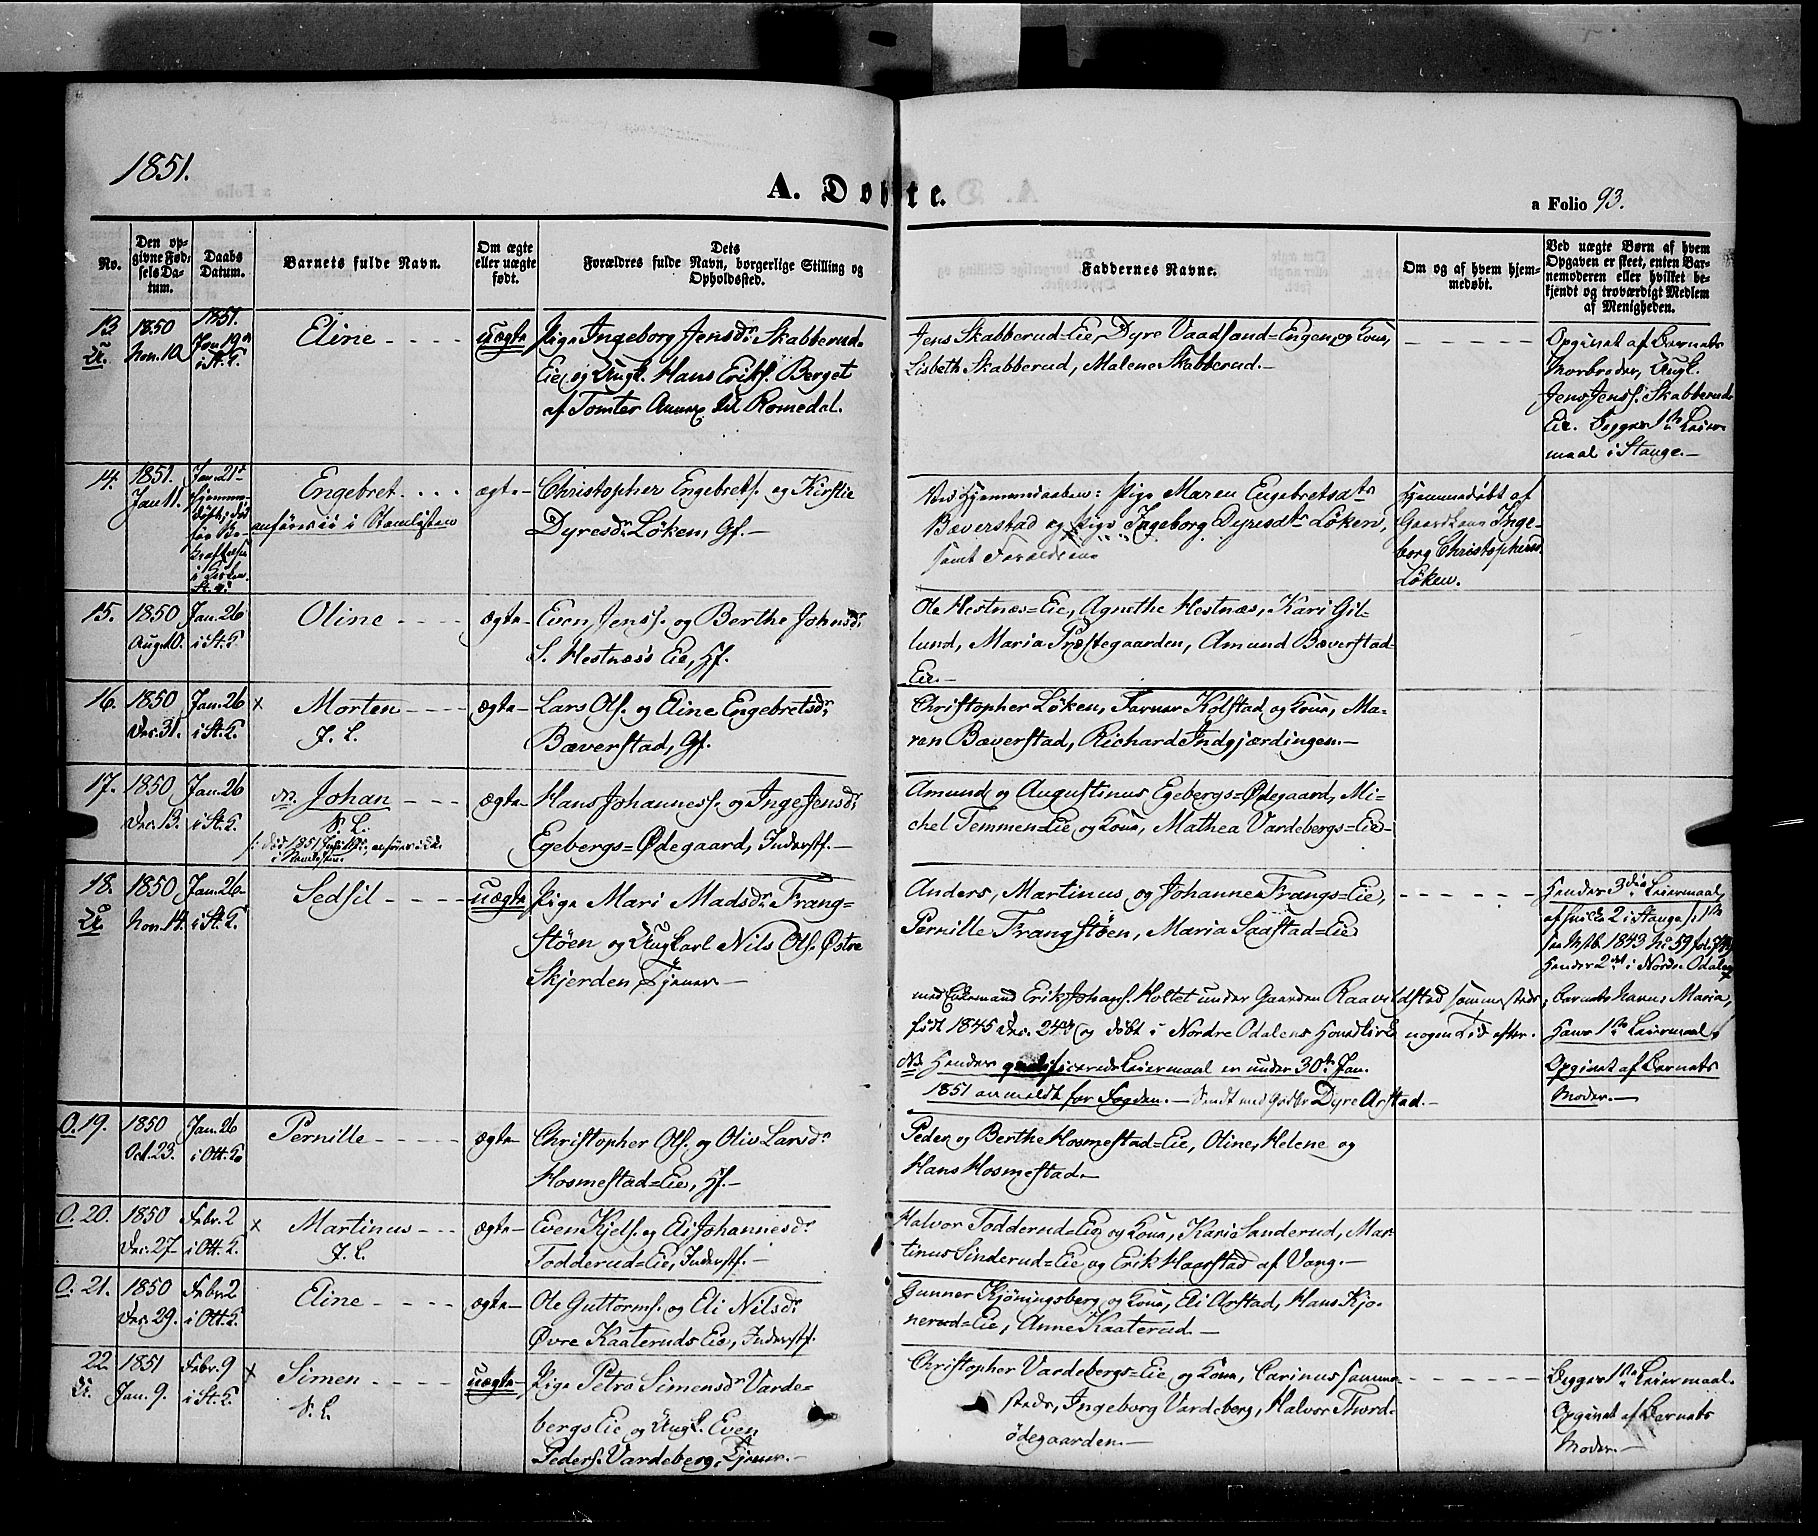 1851.
A. Døbte.
a Folio 93.
No.
Den op-
givne Fød-
sels Da-
tum.
Daabs
Datum.
Barnets fulde Navn.
Om ægte
eller uægte
født.
Dets
Forældres fulde Navn, borgerlige Stilling og
Opholdssted.
Faddernes Navne.
Om og af hvem hjem-
medøbt.
Ved uægte Børn af hvem
Opgaven er skeet, enten Bar-
nemoderen eller hvilket be-
kjendt og troværdigt Medlem
af Menigheden.
13
U.
1850
Nov. 10
1851.
Jan. 19
i St. K.
Eline
uægte
Pige Ingeborg Jensdr Skabberud-
Eie og Ungk. Hans Eriks. Berget
af Tomter Annex til Romedal.
Jens Skabberud-Eie, Dyre Vaadsand=Engen og Kone,
Lisbeth Skabberud, Malene Skabberud.-
Opgivet af Barnets
Morbroder, Ungk.
Jens Jenss. Skabberud
Eie. Begges 1te Leier-
maal i Stange.-
14.
1851.
Jan. 11.
Jan. 21
Engebret
anføres ei i Stamlisten
ægte
Christopher Engebrets. og Kirstie
Dyresdr Løken, Gf.-
Ved Hjemmedaaben: Pige Maren Engebretsdtr
Bæverstad og Pige Ingeborg Dyresdtr Løken,
samt Forældrene
Hjemmedøbt af
Gaardkone Inge-
borg Christophersd.
Løken.
15.
1850
Aug. 10.
Jan. 26
i St. K.
Oline
ægte
Even Jenss. og Berthe Johnsdr
S. Hestnæs's Eie, Hf.
Ole Hestnæs=Eie, Agnethe Hestnæs, Kari Gil-
lund, Maria Præstegaarden, Amund Bæverstad-
Eie.-
16.
1850
Dec. 31.
Jan. 26
i St. K.
x Morten
F. L.
ægte
Lars Ols. og Eline Engebretsdr
Bæverstad, Gf.
Christopher Løken, Farver Kolstad og Kone, Ma-
ren Bæverstad, Richard Indgjærdingen.-
17.
1850
Dec. 13.
Jan. 26
i St. K.
Johan
ægte
Hans Johanness. og Inge Jensdr
Egebergs=Ødegaard, Inderstf.-
Amund og Augustinus Egebergs=Ødegaard, Mi-
chel Temmen-Eie og Kone, Mathea Vardebergs=Eie-
18.
U.
1850
Nov. 14.
Jan. 26-
i St. K.
Sedsil
uægte
Pige Mari Madsdr Frang=
støen og Ungkarl Nils Ols. Østre
Skjerden, Tjener.-
Anders, Martinus og Johanne Frangs=Eie,
Pernille Frangstøen, Maria Saastad=Eie
Hendes 3die Leiermaal
af hvilke 2 i Stange,
Hendes 2det i Nordre Odalen
med Enkemand Erik Johans. Holtet under Gaarden Raavildstad sammesteds;
født 1845 Dec. 24de og døbt i Nordre Odalens Hovedkirke nogen Tid efter.
Barnets Navn: Maria,
Hans 1te Leiermaal
NB. Hendes qualificerede Leiermaal er under 30te Jan.
1851 anmeldt for Fogden.- Sendt med Dyre Arstad.-
Opgivet af Barnets
Moder.-
O. 19.
1850
Oct. 23.
Jan. 26
i Ott. K.
Pernille
ægte
Christopher Ols. og Oliv Larsdr
Hosmestad=Eie, Hf.-
Peder og Berthe Hosmestad=Eie, Oline, Helene og
Hans Hosmestad.-
O. 20.
1850
Dec. 27
Febr. 2
i Ott. K.
x Martinus
F. L.
ægte
Even Kjels. og Eli Johannesdr
Todderud=Eie, Inderstf.-
Halvor Todderud=Eie og Kone, Kari Sanderud, Mar-
tinus Sinderud=Eie og Erik Haarstad af Vang.-
O. 21.
1850
Dec. 29.
Febr. 2
i Ott. K.
Eline
ægte
Ole Guttorms. og Eli Nilsdr
Øvre Kaateruds Eie, Inderstf.
Gunner Kjøningsberg og Kone, Eli Arstad, Hans Kjo-
nerud=Eie, Anne Kaaterud.-
22
U.
1851
Jan. 9.
Febr. 9
i St. K.
x Simen
uægte
Pige Petro Simensdr Varde=
bergs Eie og Ungk. Even
Peders. Vardeberg, Tjener.-
Christopher Vardebergs=Eie og Kone, Carinus samme-
steds, Ingeborg Vardeberg, Halvor Thord-
ødegaarden.-
Begges 1te Leiermaal.
Opgivet af Barnets
Moder.-